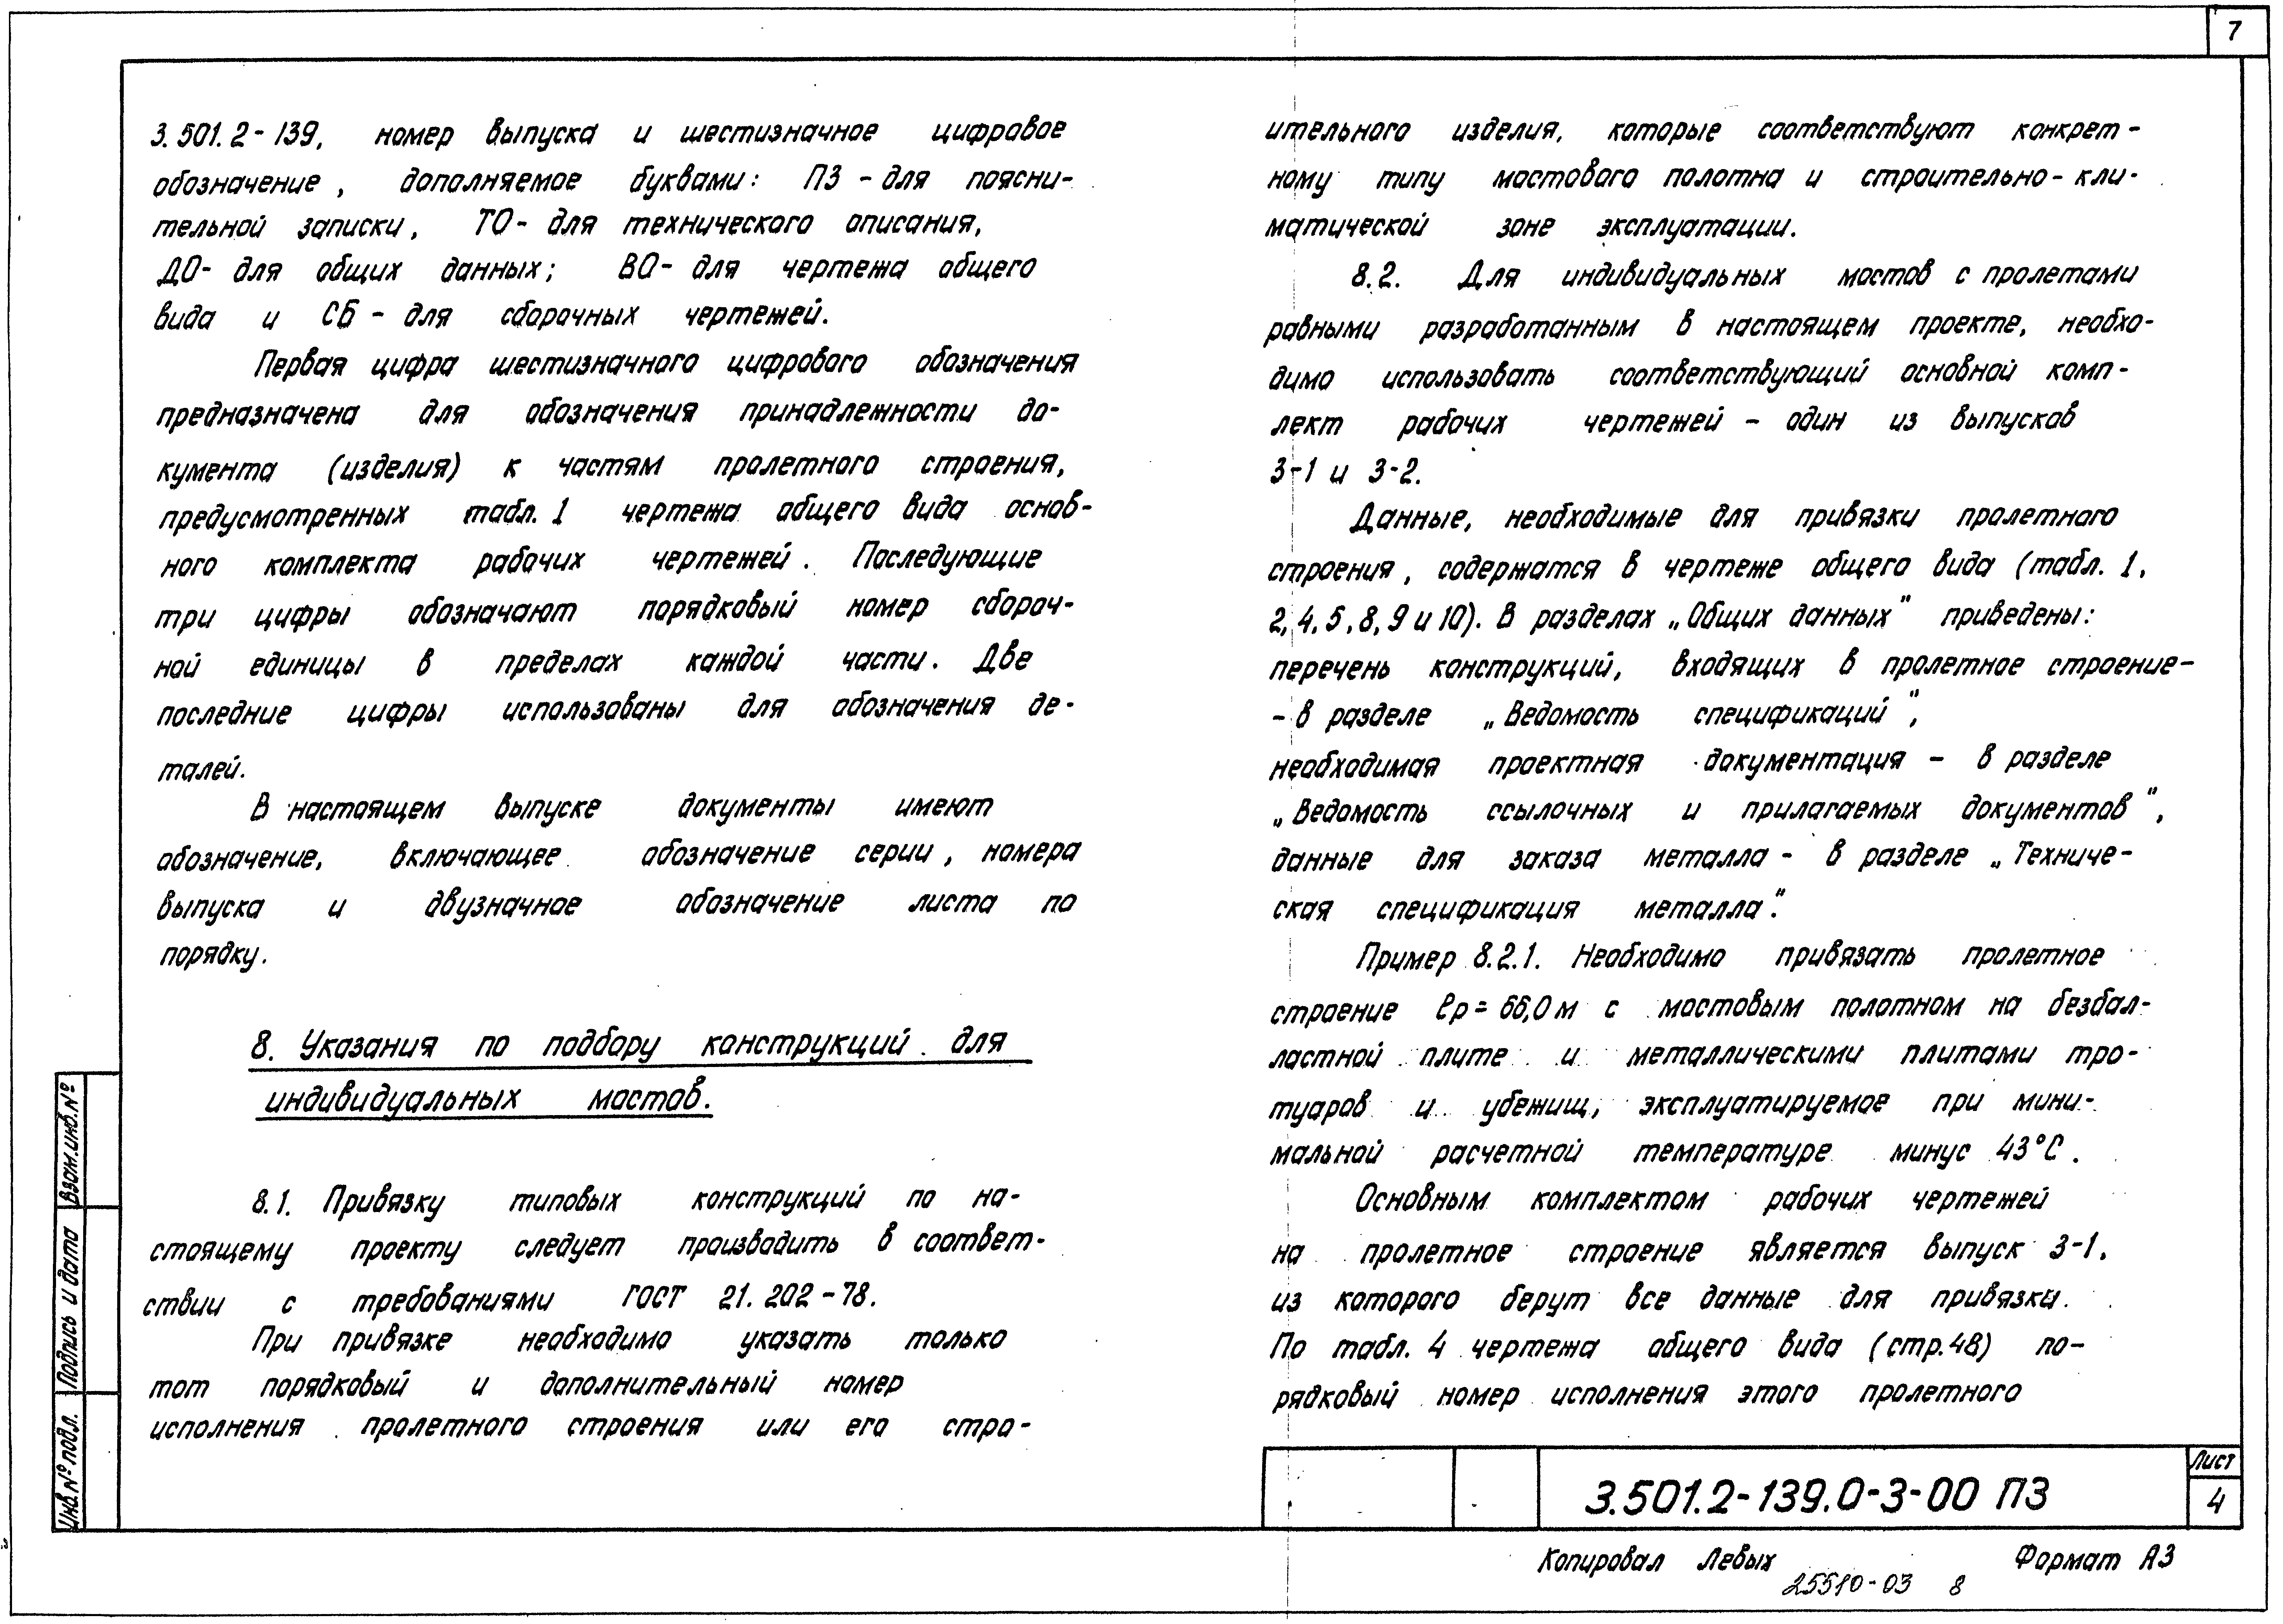 7
3.501.2-139, номер выпуска и шестизначное цифровое
обозначение, дополняемое буквами: ПЗ - для поясни-
тельной записки, ТО- для технического описания,
ДО- для общих данных; ВО- для чертежа общего
вида и СБ - для сборочных чертежей.
Первая цифра шестизначного цифрового обозначения
предназначена для обозначения принадлежности до-
кумента (изделия) к частям пролетного строения,
предусмотренных табл. 1 чертежа общего вида основ-
ного комплекта рабочих чертежей. Последующие
три цифры обозначают порядковый номер сбороч-
ной единицы в пределах каждой части. Две
последние цифры использованы для обозначения де-
талей.
В настоящем выпуске документы имеют
обозначение, включающее обозначение серии, номера
выпуска и двузначное обозначение листа по
порядку.
8. Указания по подбору конструкций для
индивидуальных мостов.
8.1. Привязку типовых конструкций по на-
стоящему проекту следует производить в соответ-
ствии с требованиями ГОСТ 21.202-78.
При привязке необходимо указать только
тот порядковый и дополнительный номер
исполнения пролетного строения или его стро-
ительного изделия, которые соответствуют конкрет-
ному типу мостового полотна и строительно-кли-
матической зоне эксплуатации.
8.2. Для индивидуальных мостов с пролетами
равными разработанным в настоящем проекте, необхо-
димо использовать соответствующий основной комп-
лект рабочих чертежей - один из выпусков
3-1 и 3-2.
Данные, необходимые для привязки пролетного
строения, содержатся в чертеже общего вида (табл. 1,
2, 4, 5, 8, 9 и 10). В разделах „Общих данных" приведены:
перечень конструкций, входящих в пролетное строение-
- в разделе „Ведомость спецификаций",
необходимая проектная документация - в разделе
„Ведомость ссылочных и прилагаемых документов",
данные для заказа металла - в разделе „Техниче-
ская спецификация металла".
Пример 8.2.1. Необходимо привязать пролетное
строение ℓр = 66,0 м с мостовым полотном на безбал-
ластной плите и металлическими плитами тро-
туаров и убежищ, эксплуатируемое при мини-
мальной расчетной температуре минус 43°С.
Основным комплектом рабочих чертежей
на пролетное строение является выпуск 3-1,
из которого берут все данные для привязки.
По табл. 4 чертежа общего вида (стр.48) по-
рядковый номер исполнения этого пролетного
Инв.№ подл. Подпись и дата Взам.инв.№
3.501.2-139.0-3-00 ПЗ
Лист
4
Копировал Левых Формат А3
25510-03 8